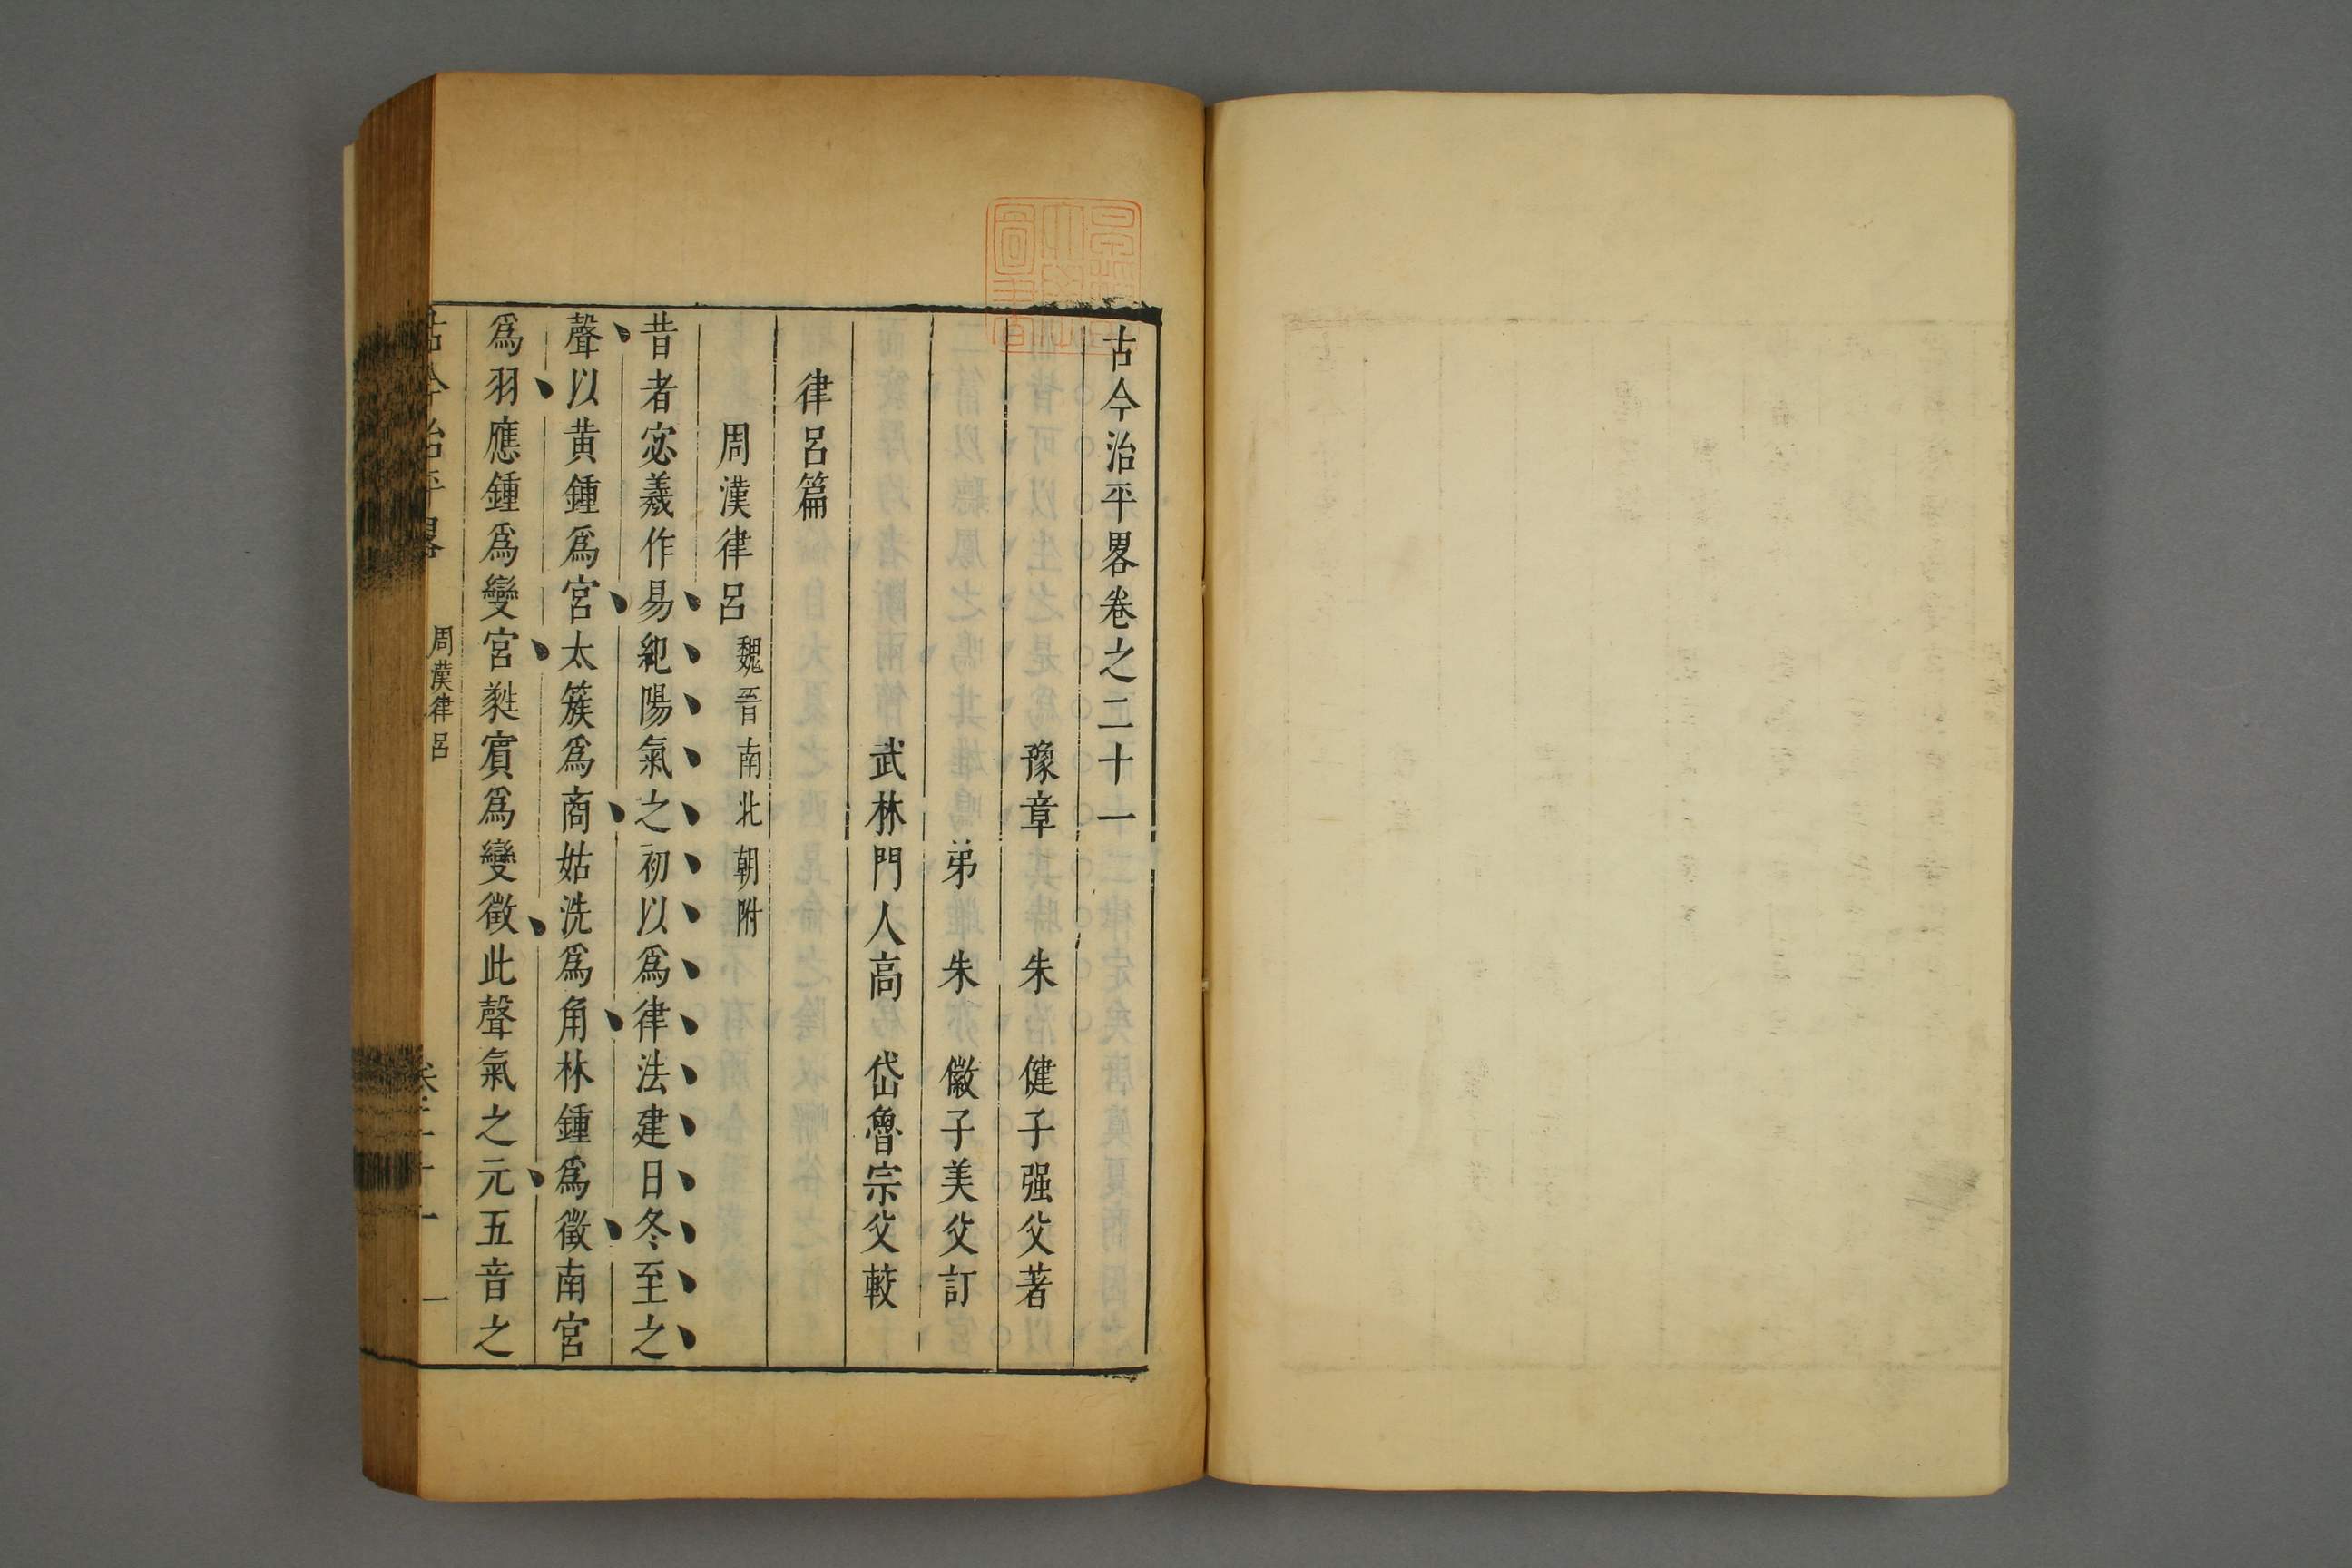 古今治平畧卷之二十一
豫章　朱　健子强父著
弟　朱　徽子美父訂
武林門人高　岱魯宗父較
律呂篇
周漢律呂魏晉南北朝附
昔者宓羲作易紀陽氣之初以爲律法建日冬至之
聲以黄鍾爲宮太簇爲商姑洗爲角林鍾爲徵南宮
爲羽應鍾爲變宮蕤賔爲變徵此聲氣之元五音之
古今治平畧　周漢律呂　卷二十一　一